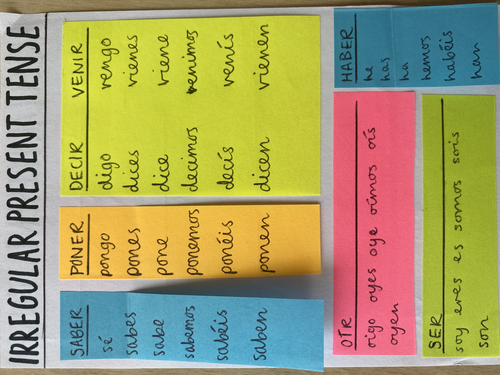 IRREGULAR PRESENT TENSE
SABER
sé
sabes
sabe
sabemos
sabéis
saben
PONER
pongo
pones
pone
ponemos
ponéis
ponen
DECIR
digo
dices
dice
decimos
decís
dicen
VENIR
vengo
vienes
viene
venimos
venís
vienen
OIR
oigo oyes oye oímos oís
oyen
SER
soy eres es somos sois
son
HABER
he
has
ha
hemos
habéis
han